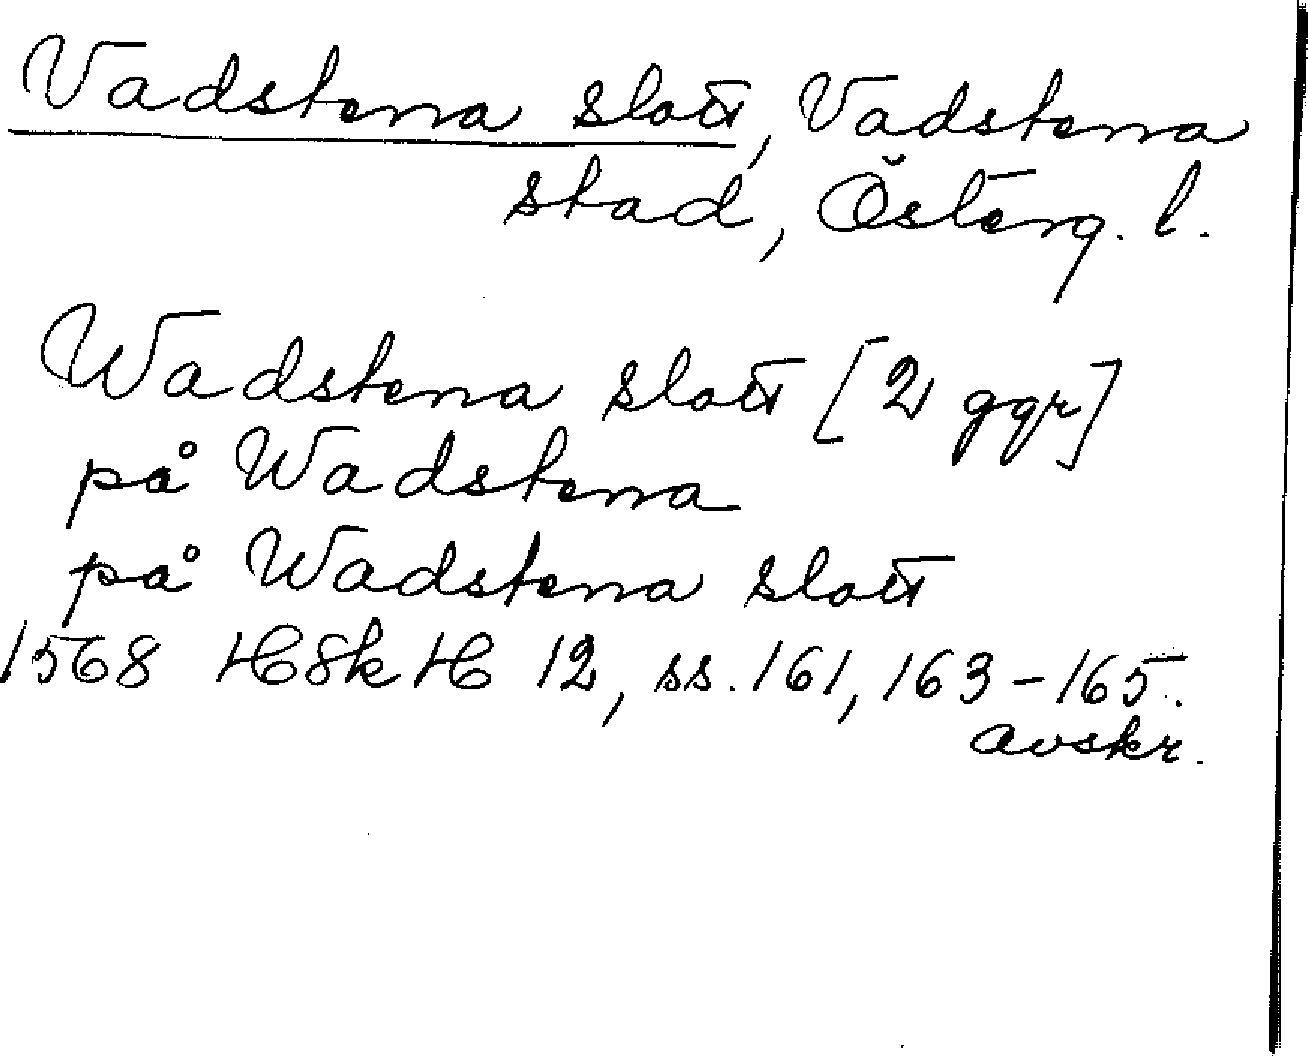 Vadstena slott, Vadstena
stad, Österg. l.
Wadstena slott [2 ggr]
på Wadstena
på Wadstena slott
1568 HSkH 12, ss. 161, 163-165.
avskr.